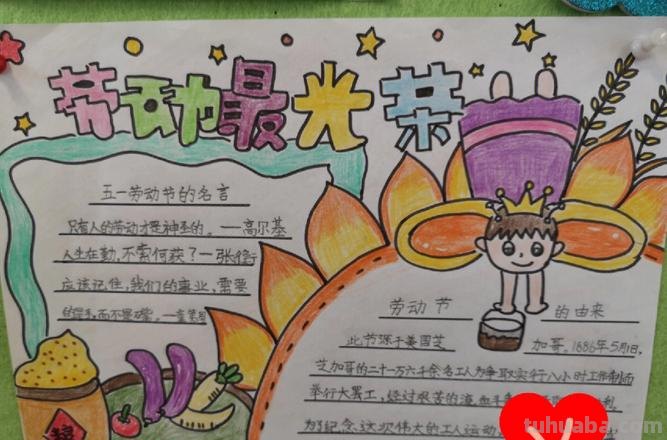 劳动最光荣
五一劳动节的名言
只有人的劳动才是神圣的。一高尔基
人生在勤，不索何获？一张衡
应该记住，我们的事业，需要
的是手，而不是嘴。一童第周
劳动节的由来
此节源于美国芝加哥。1886年5月1日，
芝加哥的二十一万六千余名工人为争取实行八小时工作制而
举行大罢工，经过艰苦的流血
为纪念这次伟大的工人运动
tuhuaba.com